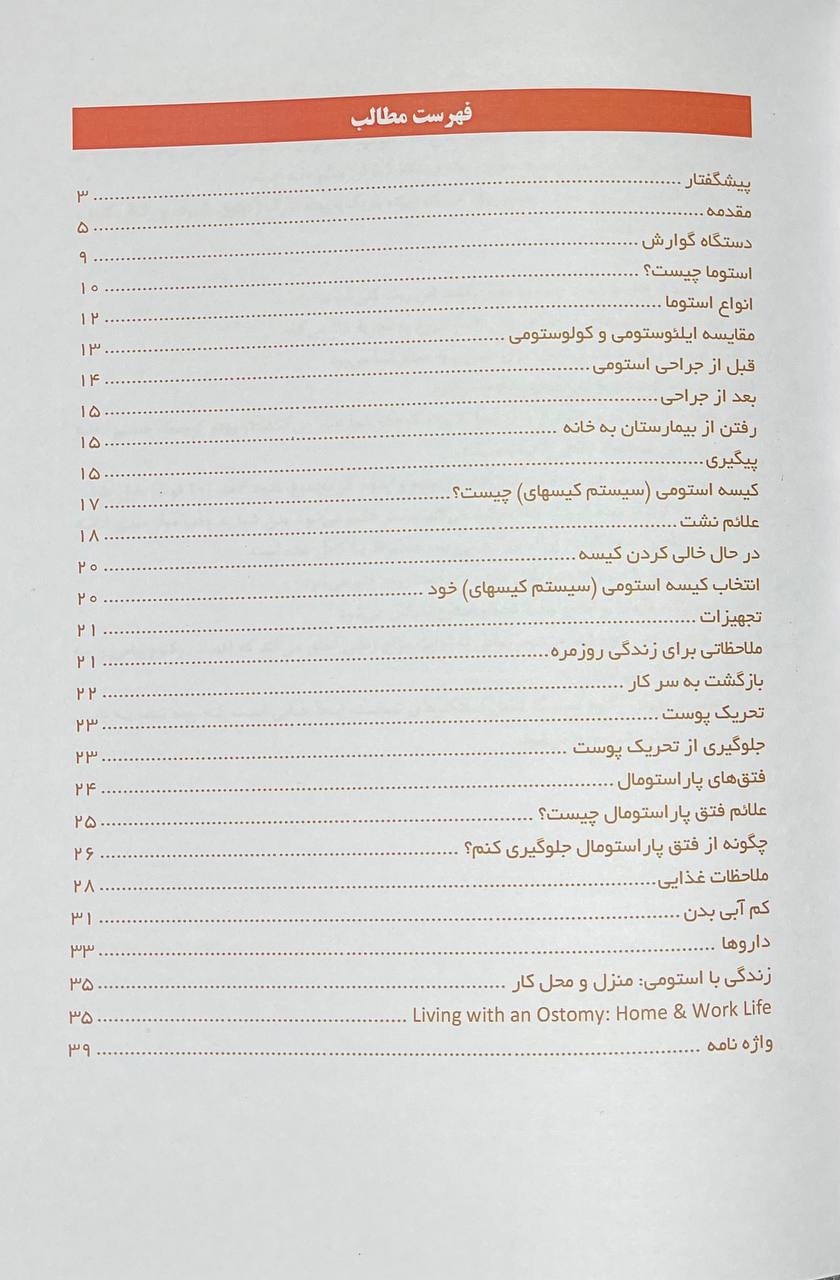 فهرست مطالب
پیشگفتار ........ ۳
مقدمه ........ ۵
دستگاه گوارش ........ ۹
استوما چیست؟ ........ ۱۰
انواع استوما ........ ۱۲
مقایسه ایلئوستومی و کولوستومی ........ ۱۳
قبل از جراحی استومی ........ ۱۴
بعد از جراحی ........ ۱۵
رفتن از بیمارستان به خانه ........ ۱۵
پیگیری ........ ۱۵
کیسه استومی (سیستم کیسهای) چیست؟ ........ ۱۷
علائم نشت ........ ۱۸
در حال خالی کردن کیسه ........ ۲۰
انتخاب کیسه استومی (سیستم کیسهای) خود ........ ۲۰
تجهیزات ........ ۲۱
ملاحظاتی برای زندگی روزمره ........ ۲۱
بازگشت به سر کار ........ ۲۲
تحریک پوست ........ ۲۳
جلوگیری از تحریک پوست ........ ۲۳
فتق‌های پاراستومال ........ ۲۴
علائم فتق پاراستومال چیست؟ ........ ۲۵
چگونه از فتق پاراستومال جلوگیری کنم؟ ........ ۲۶
ملاحظات غذایی ........ ۲۸
کم آبی بدن ........ ۳۱
داروها ........ ۳۳
زندگی با استومی: منزل و محل کار ........ ۳۵
Living with an Ostomy: Home & Work Life ........ ۳۵
واژه نامه ........ ۳۹